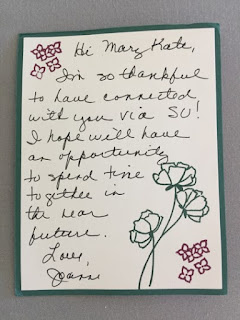 Hi Mary Kate,
I'm so thankful
to have connected
with you via SU!
I hope will have
an opportunity
to spend time
together in
the near
future.
Love,
Joanne